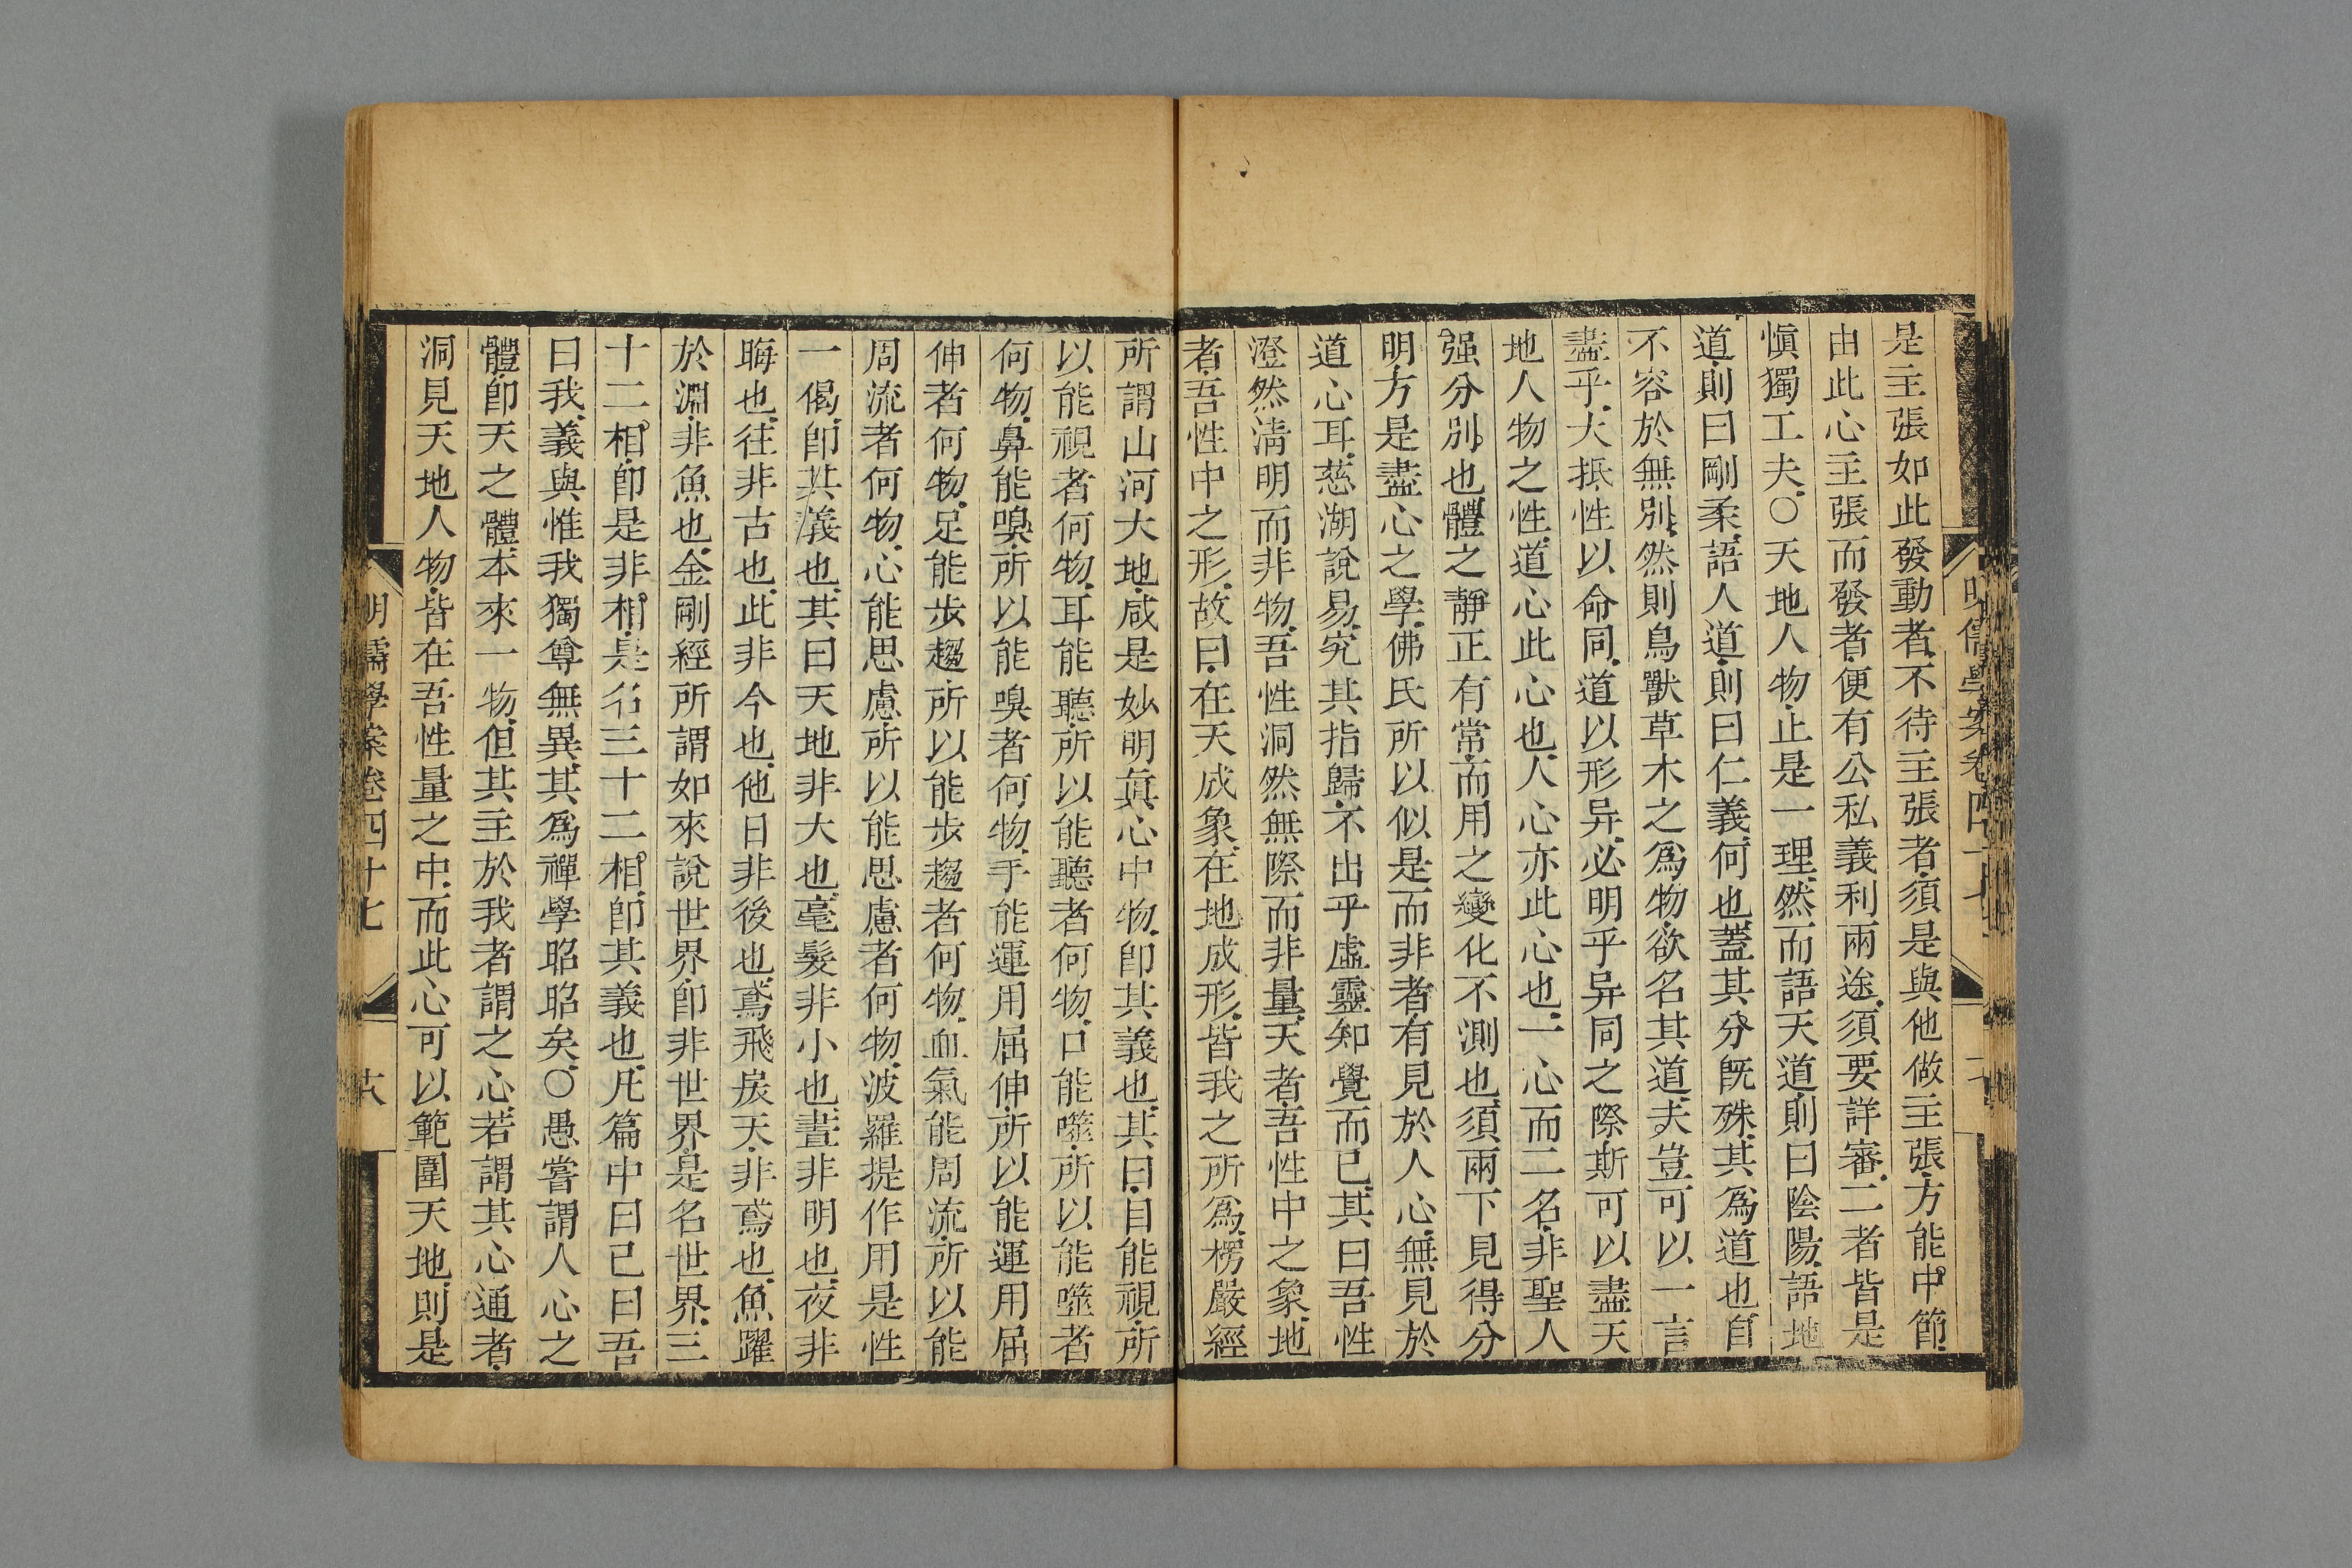 是主張如此發動者不待主張者須是與他做主張方能中節
由此心主張而發者便有公私義利兩途須要詳審二者皆是
愼獨工夫○天地人物止是一理然而語天道則曰陰陽語地
道則曰剛柔語人道則曰仁義何也蓋其分旣殊其爲道也自
不容於無別然則鳥獸草木之爲物欲名其道夫豈可以一言
盡乎大抵性以命同道以形异必明乎异同之際斯可以盡天
地人物之性道心此心也人心亦此心也一心而二名非聖人
强分別也體之靜正有常而用之變化不測也須兩下見得分
明方是盡心之學佛氏所以似是而非者有見於人心無見於
道心耳慈湖說易究其指歸不出乎虛靈知覺而已其曰吾性
澄然淸明而非物吾性洞然無際而非量天者吾性中之象地
者吾性中之形故曰在天成象在地成形皆我之所爲楞嚴經
所謂山河大地咸是妙明眞心中物卽其義也其曰目能視所
以能視者何物耳能聽所以能聽者何物口能噬所以能噬者
何物鼻能嗅所以能嗅者何物手能運用屈伸所以能運用屈
伸者何物足能步趨所以能步趨者何物血氣能周流所以能
周流者何物心能思慮所以能思慮者何物波羅提作用是性
一偈卽其義也其曰天地非大也毫髮非小也晝非明也夜非
晦也往非古也此非今也他日非後也鳶飛戾天非鳶也魚躍
於淵非魚也金剛經所謂如來說世界卽非世界是名世界三
十二相卽是非相是名三十二相卽其義也凡篇中曰己曰吾
曰我義與惟我獨尊無異其爲禪學昭昭矣○愚嘗謂人心之
體卽天之體本來一物但其主於我者謂之心若謂其心通者
洞見天地人物皆在吾性量之中而此心可以範圍天地則是
明儒學案卷四十七